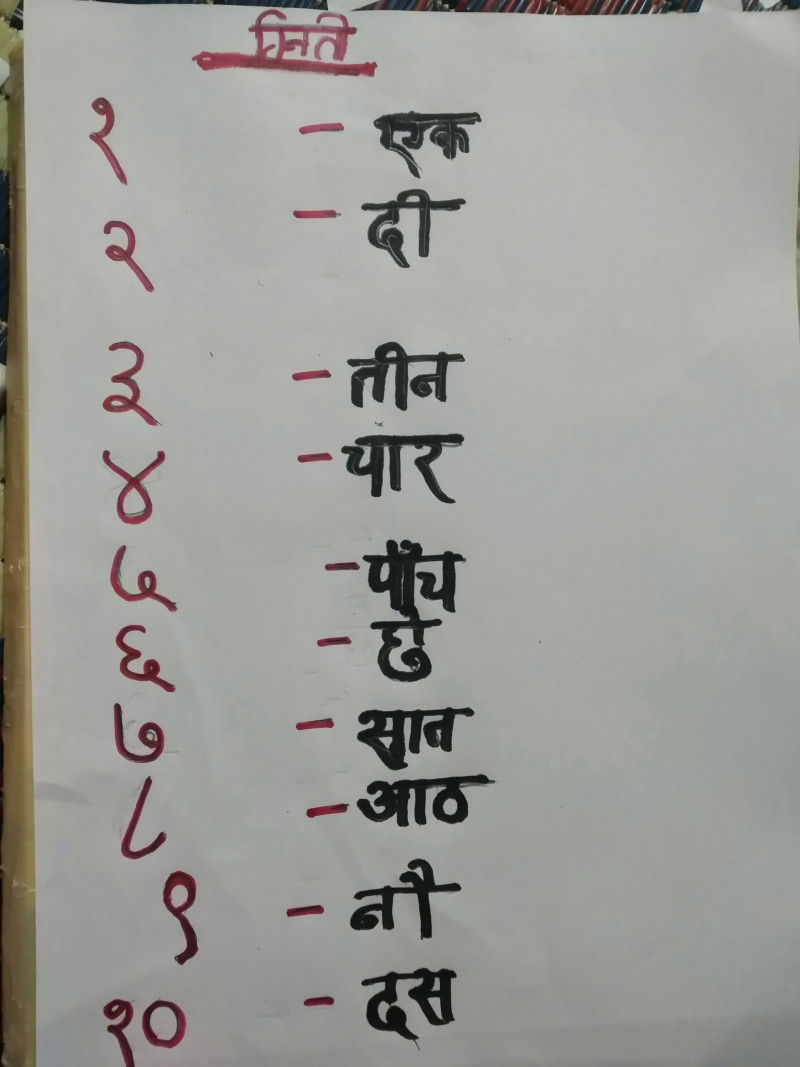 गिनती
१ - एक
२ - दो
३ - तीन
४ - चार
५ - पाँच
६ - छे
७ - सात
८ - आठ
९ - नौ
१० - दस